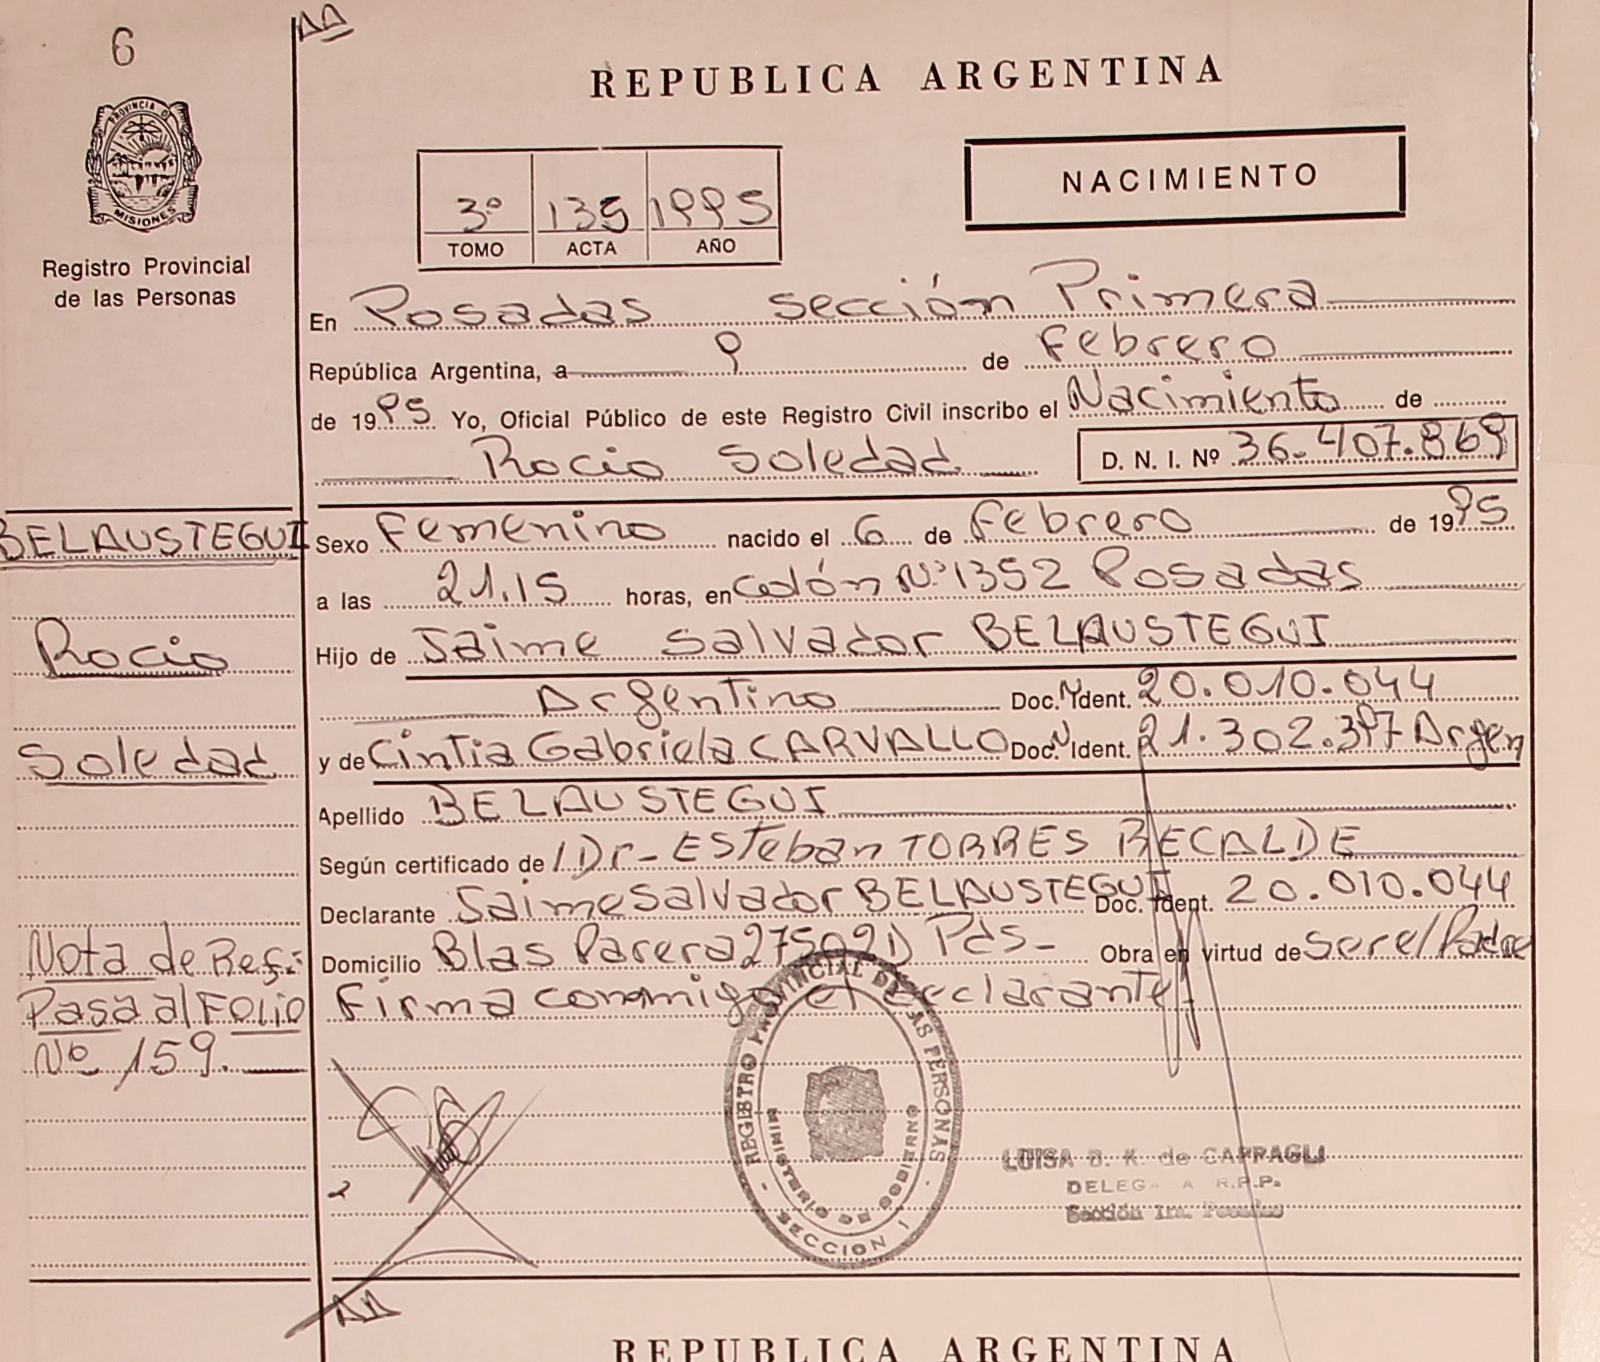 6
REPUBLICA ARGENTINA
PROVINCIA D
MISIONES
Registro Provincial
de las Personas
NACIMIENTO
3º 135 1995
TOMO ACTA AÑO
En Posadas sección Primera
República Argentina, a 9 de Febrero
de 1995 Yo, Oficial Público de este Registro Civil inscribo el Nacimiento de
Rocio Soledad D. N. I. Nº 36.407.869
BELAUSTEGUI
Rocio
Soledad
Nota de Ref:
Pasa al Folio
Nº 159.
Sexo Femenino nacido el 6 de Febrero de 1995
a las 21.15 horas, en Colón Nº 1352 Posadas
Hijo de Jaime Salvador BELAUSTEGUI
Argentino Doc. N Ident. 20.010.044
y de Cintia Gabriela CARVALLO Doc. N Ident. 21.302.397 Argen
Apellido BELAUSTEGUI
Según certificado de Dr- Esteban TORRES RECALDE
Declarante Jaime Salvador BELAUSTEGUI Doc. Ident. 20.010.044
Domicilio Blas Parera Pds- Obra en virtud de ser el Padre
Firma conmigo el declarante.
REGISTRO PROVINCIAL DE LAS PERSONAS
MINISTERIO DE GOBIERNO
SECCION I
LUISA B. K. de CAPPAGLI
DELEG A R.P.P.
Sección 1ra. Posadas
REPUBLICA ARGENTINA